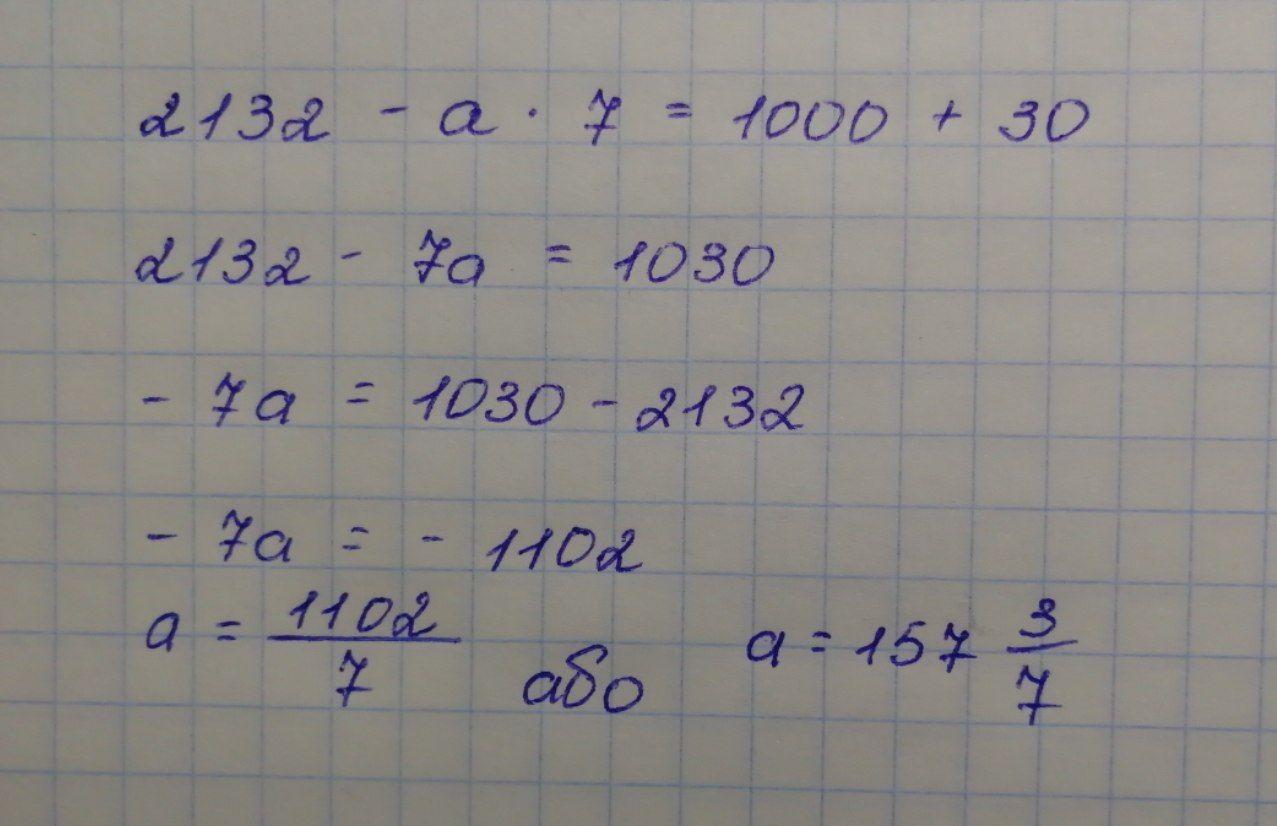 2132 - a · 7 = 1000 + 30
2132 - 7a = 1030
- 7a = 1030 - 2132
- 7a = - 1102
a = 1102/7 або a = 157 3/7